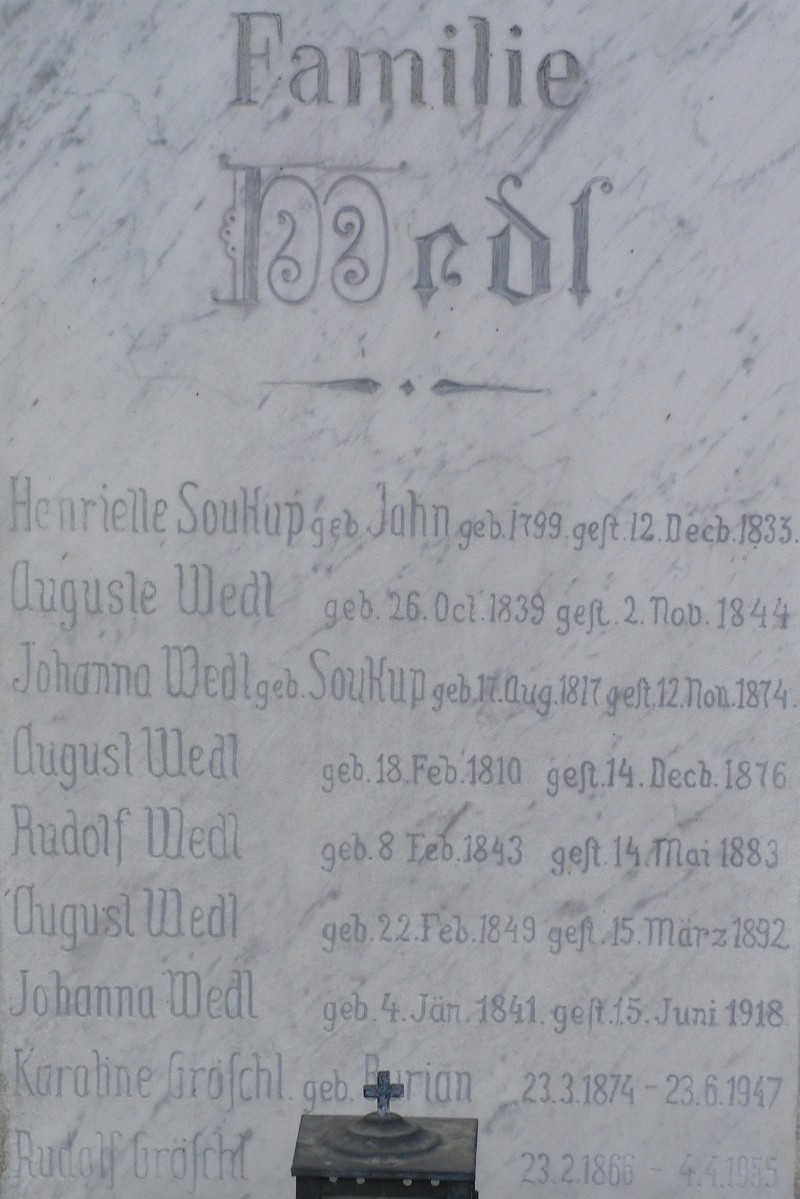 Familie
Wedl
Henriette Soukup geb. Jahn geb. 1799. gest. 12. Decb. 1833.
Auguste Wedl geb. 26. Oct. 1839 gest. 2. Nov. 1844
Johanna Wedl geb. Soukup geb. 17. Aug. 1817 gest. 12. Nov. 1874.
August Wedl geb. 18. Feb. 1810 gest. 14. Decb. 1876
Rudolf Wedl geb. 8 Feb. 1843 gest. 14. Mai 1883
August Wedl geb. 22. Feb. 1849 gest. 15. März 1892
Johanna Wedl geb. 4. Jän. 1841. gest. 15. Juni 1918
Karoline Gröschl. geb. Burian 23.3.1874 - 23.6.1947
Rudolf Gröschl 23.2.1866 - 4.4.1955